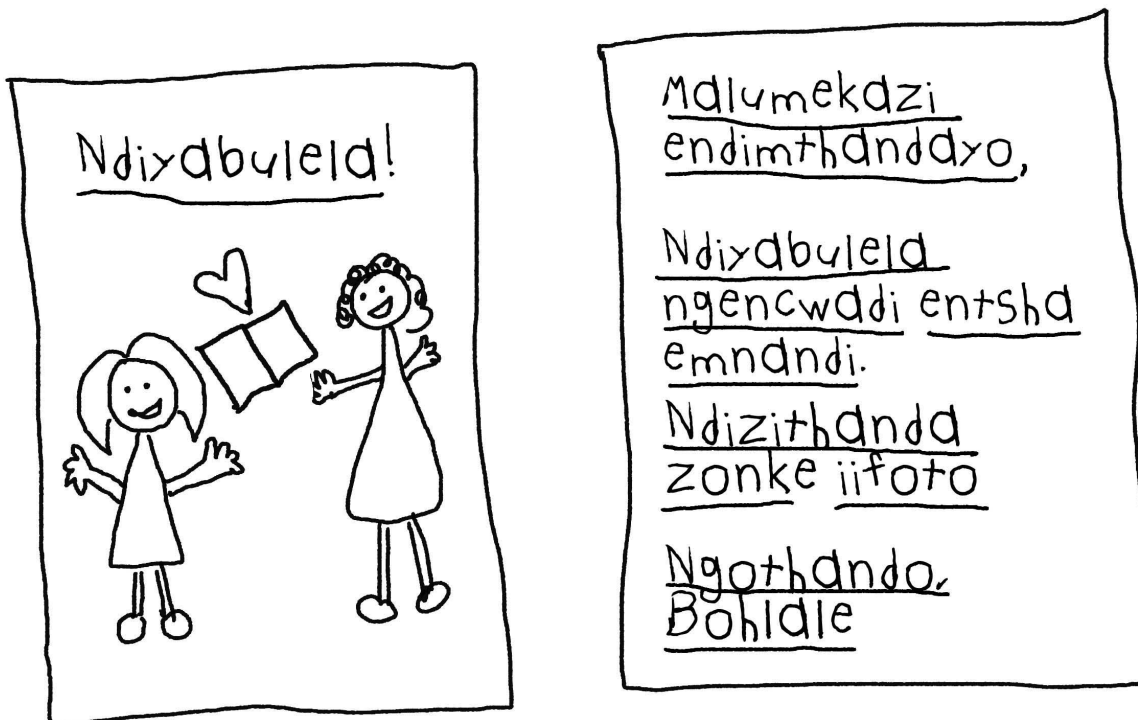 Ndiyabulela!
Malumekazi
endimthandayo,
Ndiyabulela
ngencwadi entsha
emnandi.
Ndizithanda
zonke iifoto
Ngothando,
Bohlale